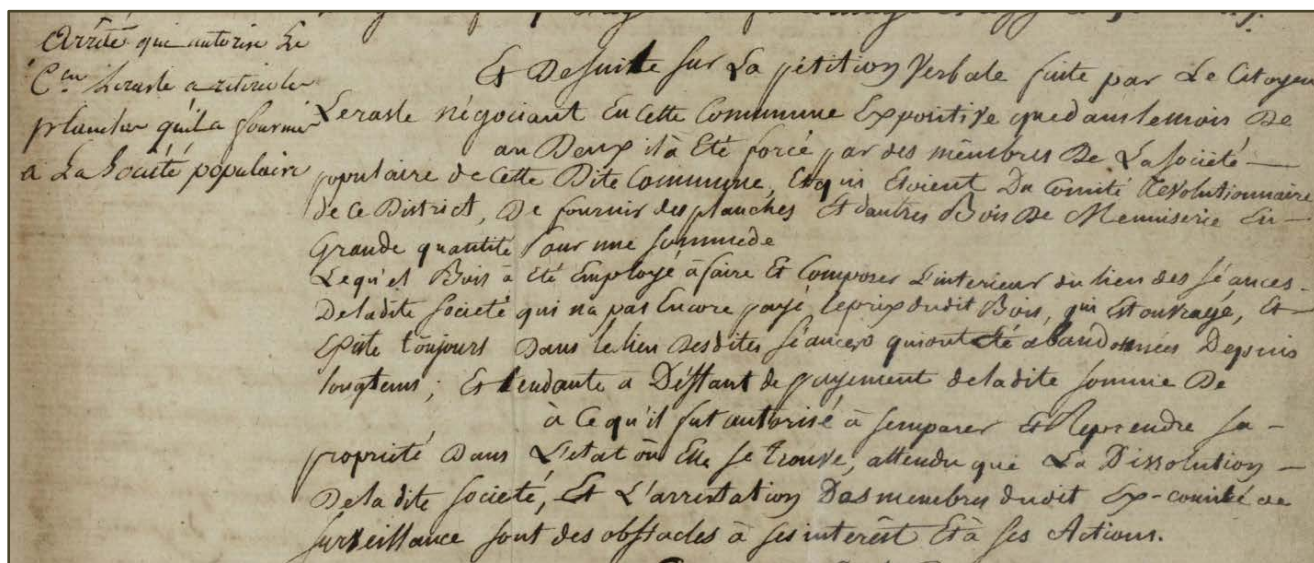 Arrêté qui autorise Le
C.en Leraste a retirer les
planches qu'il a fournies
a La Société populaire
Et De suite sur La pétition Verbale faite par Le Citoyen
Leraste négociant En cette Commune Expositive que dans le mois De
an Deux il à Eté forcé par des mémbres De La Société
populaire de Cette Dite Commune, Et qui Etoient Du Comité Revolutionnaire
de Ce District, De fournir des planches Et dautres Bois De Menuiserie En
Grande quantité Pour une somme de
Lequ'el Bois à été Employé à faire Et Composer L'interieur du lieu des séances
De ladite Societé qui na pas Encore payé le prix dudit Bois, qui Est ouvragé, Et
Existe toujours Dans le lieu Desdites séances qui ont été abandonnées Depuis
longtems; Et tendante a Déffaut de payement de ladite somme De
à Ce qu'il fut autorisé à semparer Et Reprendre sa
propriété Dans L'etat où Elle se trouve, attendu que La Dissolution
De la dite société, Et L'arrestation Des membres dudit Ex-comité de
surveillance sont des obstacles à ses interêt Et à ses Actions.